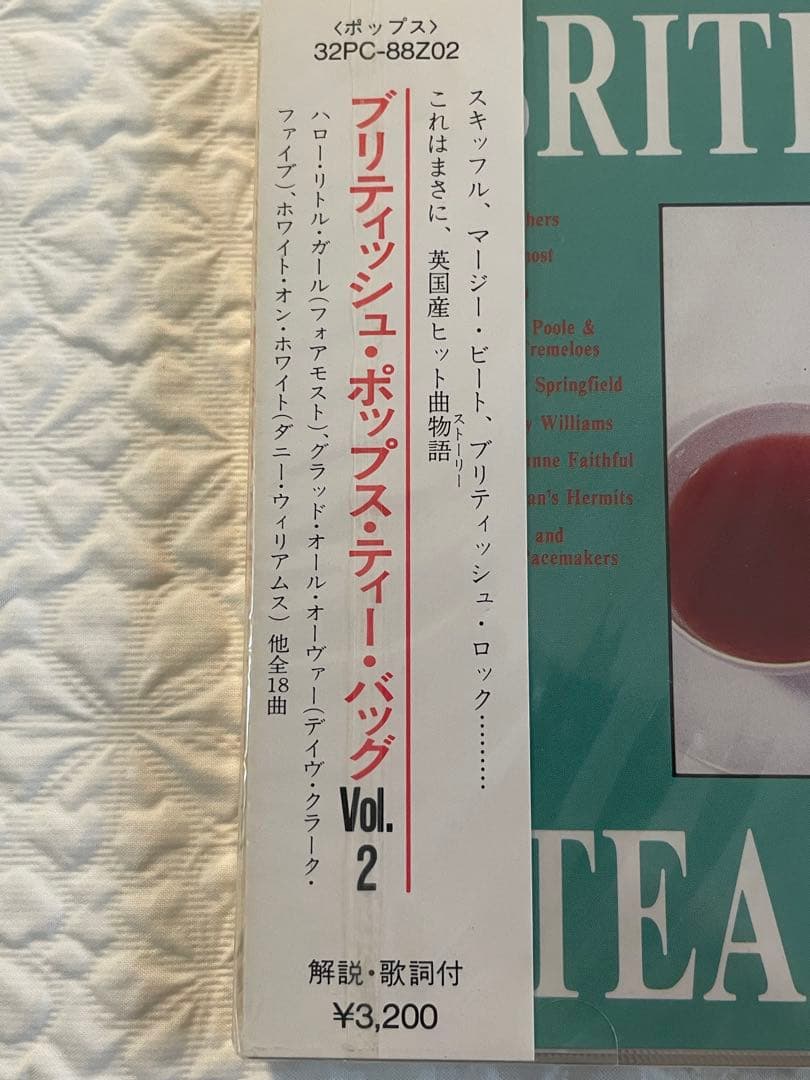 〈ポップス〉
32PC-88Z02
スキッフル、マージー・ビート、ブリティッシュ・ロック………
これはまさに、英国産ヒット曲物語
ストーリー
ブリティッシュ・ポップス・ティー・バッグ Vol. 2
ハロー・リトル・ガール(フォアモスト)、グラッド・オール・オーヴァー(デイヴ・クラーク・
ファイブ)、ホワイト・オン・ホワイト(ダニー・ウィリアムス) 他全18曲
解説・歌詞付
¥3,200
RITI
hers
most
Poole &
Tremeloes
Springfield
y Williams
anne Faithful
an's Hermits
and
Pacemakers
TEA